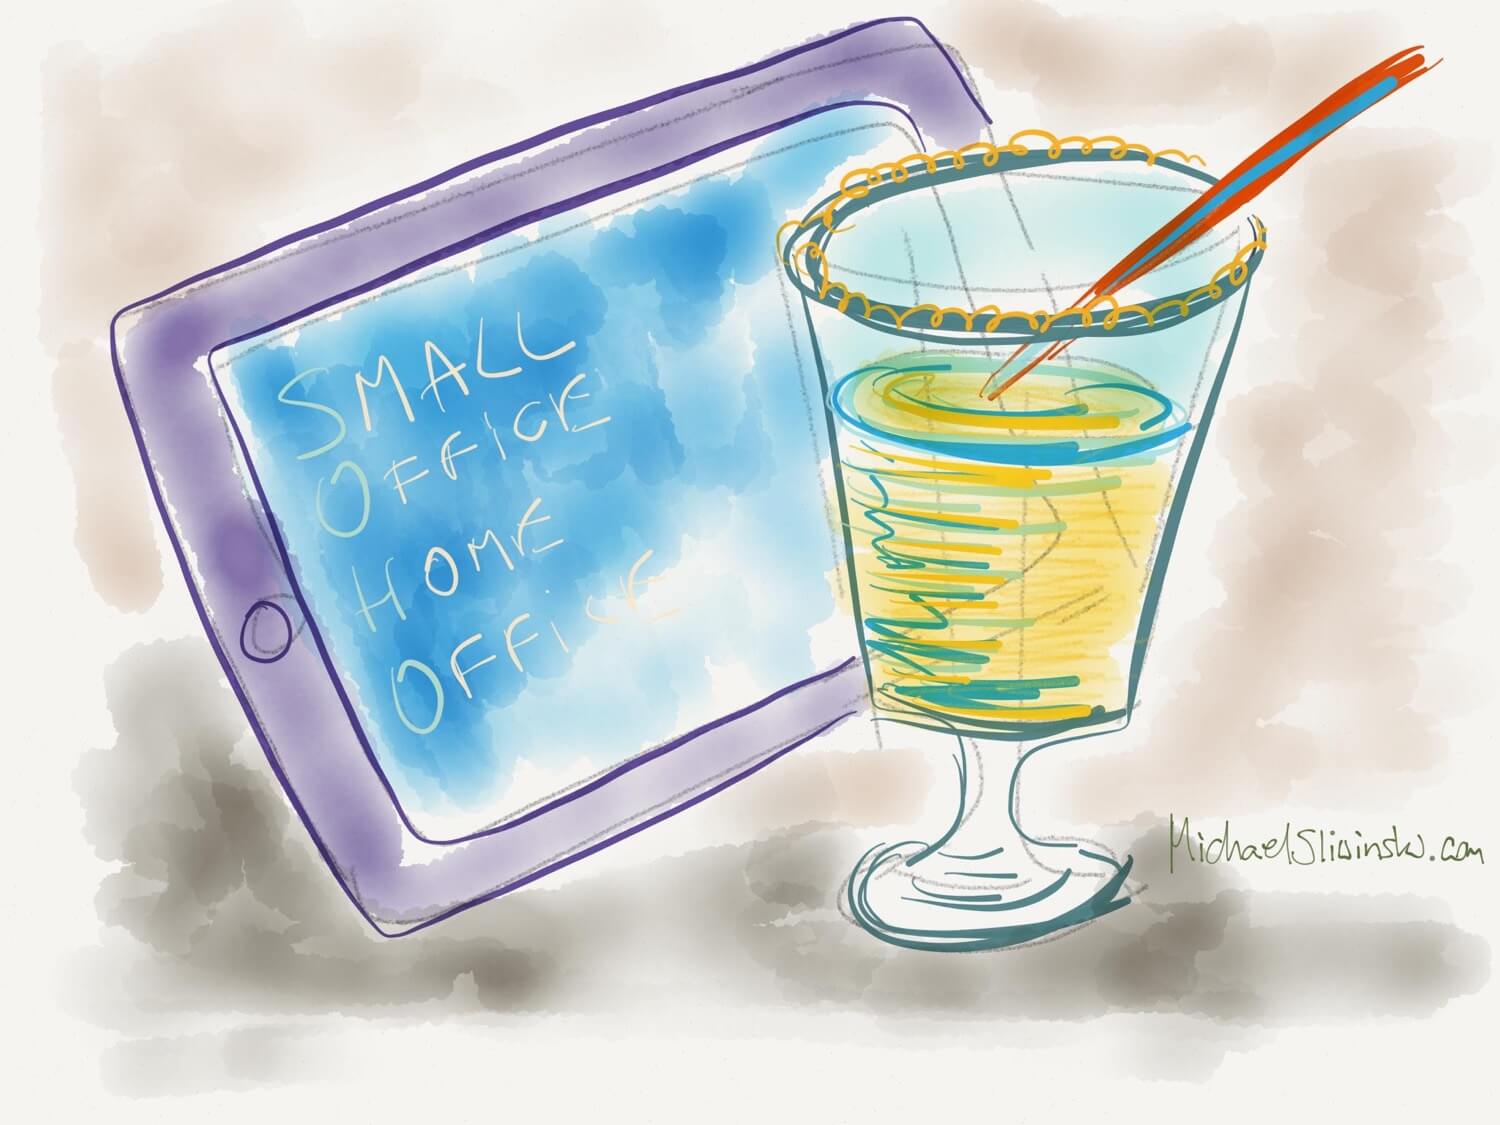 SMALL
OFFICE
HOME
OFFICE
MichaelSliwinski.com